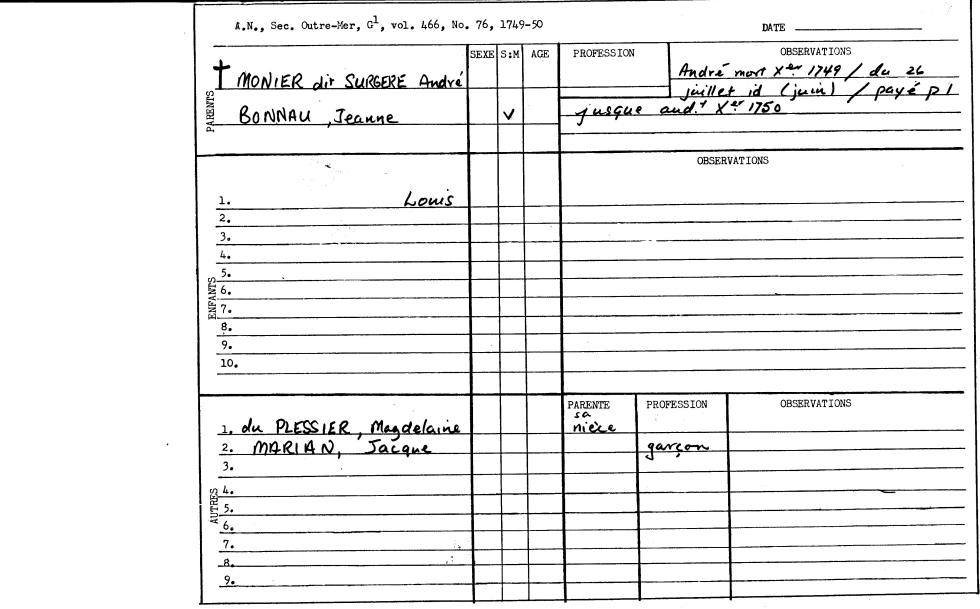 A.N., Sec. Outre-Mer, G1, vol. 466, No. 76, 1749-50 DATE
SEXE S:M AGE PROFESSION OBSERVATIONS
PARENTS
† MONIER dit SURGERE André
André mort Xer 1749 / du 26
juillet id (juin) / payé p 1
BONNAU, Jeanne V jusque aud.t Xer 1750
OBSERVATIONS
ENFANTS
1. Louis
2.
3.
4.
5.
6.
7.
8.
9.
10.
PARENTE PROFESSION OBSERVATIONS
AUTRES
sa
1. du PLESSIER, Magdelaine nièce
2. MARIAN, Jacque garçon
3.
4.
5.
6.
7.
8.
9.